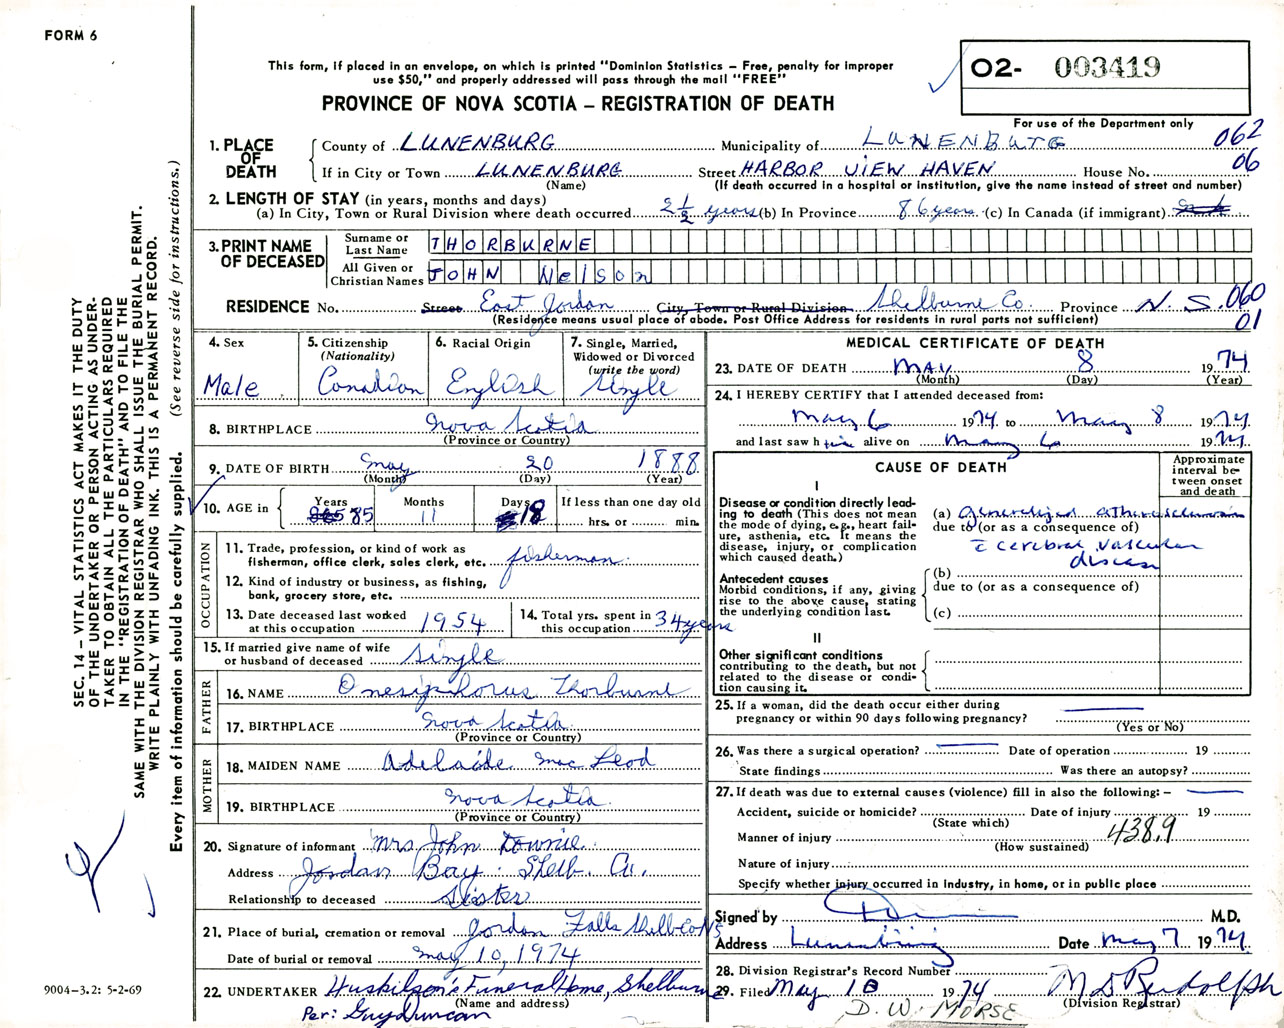 FORM 6
This form, if placed in an envelope, on which is printed "Dominion Statistics – Free, penalty for improper
use $50," and properly addressed will pass through the mail "FREE"
PROVINCE OF NOVA SCOTIA – REGISTRATION OF DEATH
O2- 003419
For use of the Department only
062
06
1. PLACE OF DEATH
County of LUNENBURG Municipality of LUNENBURG
If in City or Town LUNENBURG Street HARBOR VIEW HAVEN House No.
(Name) (If death occurred in a hospital or institution, give the name instead of street and number)
2. LENGTH OF STAY (in years, months and days)
(a) In City, Town or Rural Division where death occurred 2 1/2 years (b) In Province 86 years (c) In Canada (if immigrant)
3. PRINT NAME OF DECEASED
Surname or Last Name THORBURNE
All Given or Christian Names JOHN Nelson
RESIDENCE No. Street East Jordan City, Town or Rural Division Shelburne Co. Province N.S. 060
(Residence means usual place of abode. Post Office Address for residents in rural parts not sufficient) 01
4. Sex
Male
5. Citizenship
(Nationality)
Canadian
6. Racial Origin
English
7. Single, Married,
Widowed or Divorced
(write the word)
Single
8. BIRTHPLACE Nova Scotia
(Province or Country)
9. DATE OF BIRTH May 20 1888
(Month) (Day) (Year)
10. AGE in Years 85 Months 11 Days 18 If less than one day old
hrs. or min.
OCCUPATION
11. Trade, profession, or kind of work as
fisherman, office clerk, sales clerk, etc. fisherman
12. Kind of industry or business, as fishing,
bank, grocery store, etc.
13. Date deceased last worked
at this occupation 1954
14. Total yrs. spent in
this occupation 34 years
15. If married give name of wife
or husband of deceased Single
FATHER
16. NAME Onesiphorus Thorburne
17. BIRTHPLACE Nova Scotia
(Province or Country)
MOTHER
18. MAIDEN NAME Adelaide Mac Leod
19. BIRTHPLACE Nova Scotia
(Province or Country)
20. Signature of informant Mrs John Downie
Address Jordan Bay Shelb. Co.
Relationship to deceased Sister
21. Place of burial, cremation or removal Jordan Falls Shelb Co NS
Date of burial or removal May 10, 1974
22. UNDERTAKER Huskilson's Funeral Home, Shelburne
(Name and address)
Per: Guy Duncan
MEDICAL CERTIFICATE OF DEATH
23. DATE OF DEATH MAY 8 1974
(Month) (Day) (Year)
24. I HEREBY CERTIFY that I attended deceased from:
May 6 1974 to May 8 1974
and last saw him alive on May 6 1974
CAUSE OF DEATH
Approximate
interval be-
tween onset
and death
I
Disease or condition directly lead-
ing to death (This does not
mean the mode of dying, e.g., heart fail-
ure, asthenia, etc. It means the
disease, injury, or complication
which caused death.)
(a) Generalized atherosclerosis
due to (or as a consequence of)
c̄ cerebral vascular
disease
Antecedent causes
Morbid conditions, if any, giving
rise to the above cause, stating
the underlying condition last.
(b)
due to (or as a consequence of)
(c)
II
Other significant conditions
contributing to the death, but not
related to the disease or condi-
tion causing it.
25. If a woman, did the death occur either during
pregnancy or within 90 days following pregnancy?
(Yes or No)
26. Was there a surgical operation? Date of operation 19
State findings Was there an autopsy?
27. If death was due to external causes (violence) fill in also the following: –
Accident, suicide or homicide? Date of injury 19
(State which)
Manner of injury 438.9
(How sustained)
Nature of injury
Specify whether injury occurred in industry, in home, or in public place
Signed by M.D.
Address Lunenburg Date May 7 1974
28. Division Registrar's Record Number
29. Filed May 10 1974 M D Rudolph
(Division Registrar)
D. W. MORSE
SEC. 14 – VITAL STATISTICS ACT MAKES IT THE DUTY
OF THE UNDERTAKER OR PERSON ACTING AS UNDER-
TAKER TO OBTAIN ALL THE PARTICULARS REQUIRED
IN THE "REGISTRATION OF DEATH" AND TO FILE THE
SAME WITH THE DIVISION REGISTRAR WHO SHALL ISSUE THE BURIAL PERMIT.
WRITE PLAINLY WITH UNFADING INK. THIS IS A PERMANENT RECORD.
Every item of information should be carefully supplied. (See reverse side for instructions.)
9004-3.2: 5-2-69